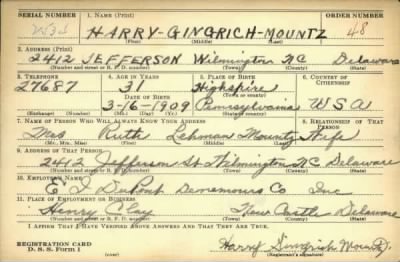 SERIAL NUMBER 1. NAME (Print) ORDER NUMBER
HARRY-GINGRICH-MOUNTZ 48
(First) (Middle) (Last)
2. ADDRESS (Print)
2412 JEFFERSON Wilmington NC Delaware
(Number and street or R. F. D. number) (Town) (County) (State)
3. TELEPHONE 4. AGE IN YEARS 5. PLACE OF BIRTH 6. COUNTRY OF CITIZENSHIP
27687 31 Highspire
DATE OF BIRTH (Town or county)
3-16-1909 Pennsylvania USA
(Exchange) (Number) (Mo.) (Day) (Yr.) (State or country)
7. NAME OF PERSON WHO WILL ALWAYS KNOW YOUR ADDRESS 8. RELATIONSHIP OF THAT PERSON
Mrs Ruth Lehman Mountz Wife
(Mr., Mrs., Miss) (First) (Middle) (Last)
9. ADDRESS OF THAT PERSON
2412 Jefferson St Wilmington NC Delaware
(Number and street or R. F. D. number) (Town) (County) (State)
10. EMPLOYER'S NAME
E I DuPont Co Inc
11. PLACE OF EMPLOYMENT OR BUSINESS
Henry Clay New Castle Delaware
(Number and street or R. F. D. number) (Town) (County) (State)
I AFFIRM THAT I HAVE VERIFIED ABOVE ANSWERS AND THAT THEY ARE TRUE.
REGISTRATION CARD
D. S. S. Form 1 Harry Gingrich Mountz
(Registrant's signature)